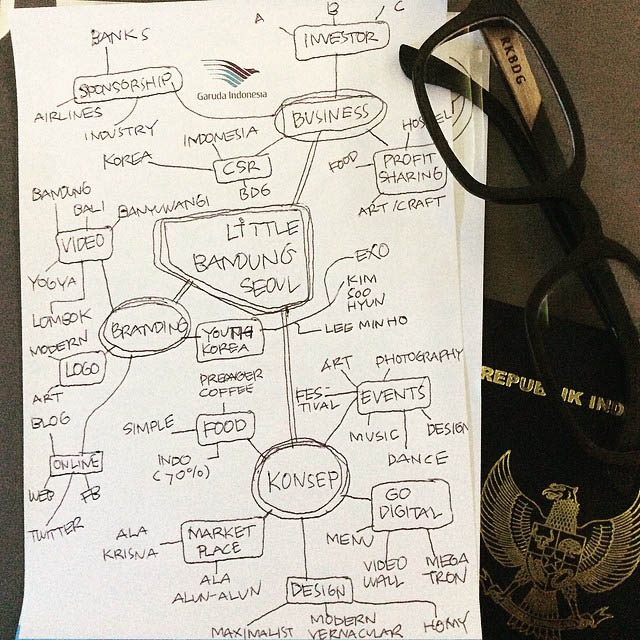 BANKS
A
B
C
INVESTOR
SPONSORSHIP
Garuda Indonesia
AIRLINES
INDUSTRY
BUSINESS
INDONESIA
KOREA
CSR
BDG
FOOD
PROFIT
SHARING
ART/CRAFT
RKBDG
BANDUNG
BALI
BANYUWANGI
VIDEO
YOGYA
LOMBOK
LITTLE
BANDUNG
SEOUL
EXO
KIM
SOO
HYUN
LEE MIN HO
BRANDING
YOUTH
KOREA
MODERN
LOGO
ART
BLOG
ONLINE
WEB
FB
TWITTER
COFFEE
SIMPLE
FOOD
INDO
(70%)
ART
PHOTOGRAPHY
FES-
TIVAL
EVENTS
MUSIC
DANCE
DESIGN
KONSEP
GO
DIGITAL
MENU
VIDEO
WALL
MEGA
TRON
MARKET
PLACE
ALA
KRISNA
ALA
ALUN-ALUN
DESIGN
MAXIMALIST
MODERN
VERNACULAR
HOMY
REPUBLIK IND